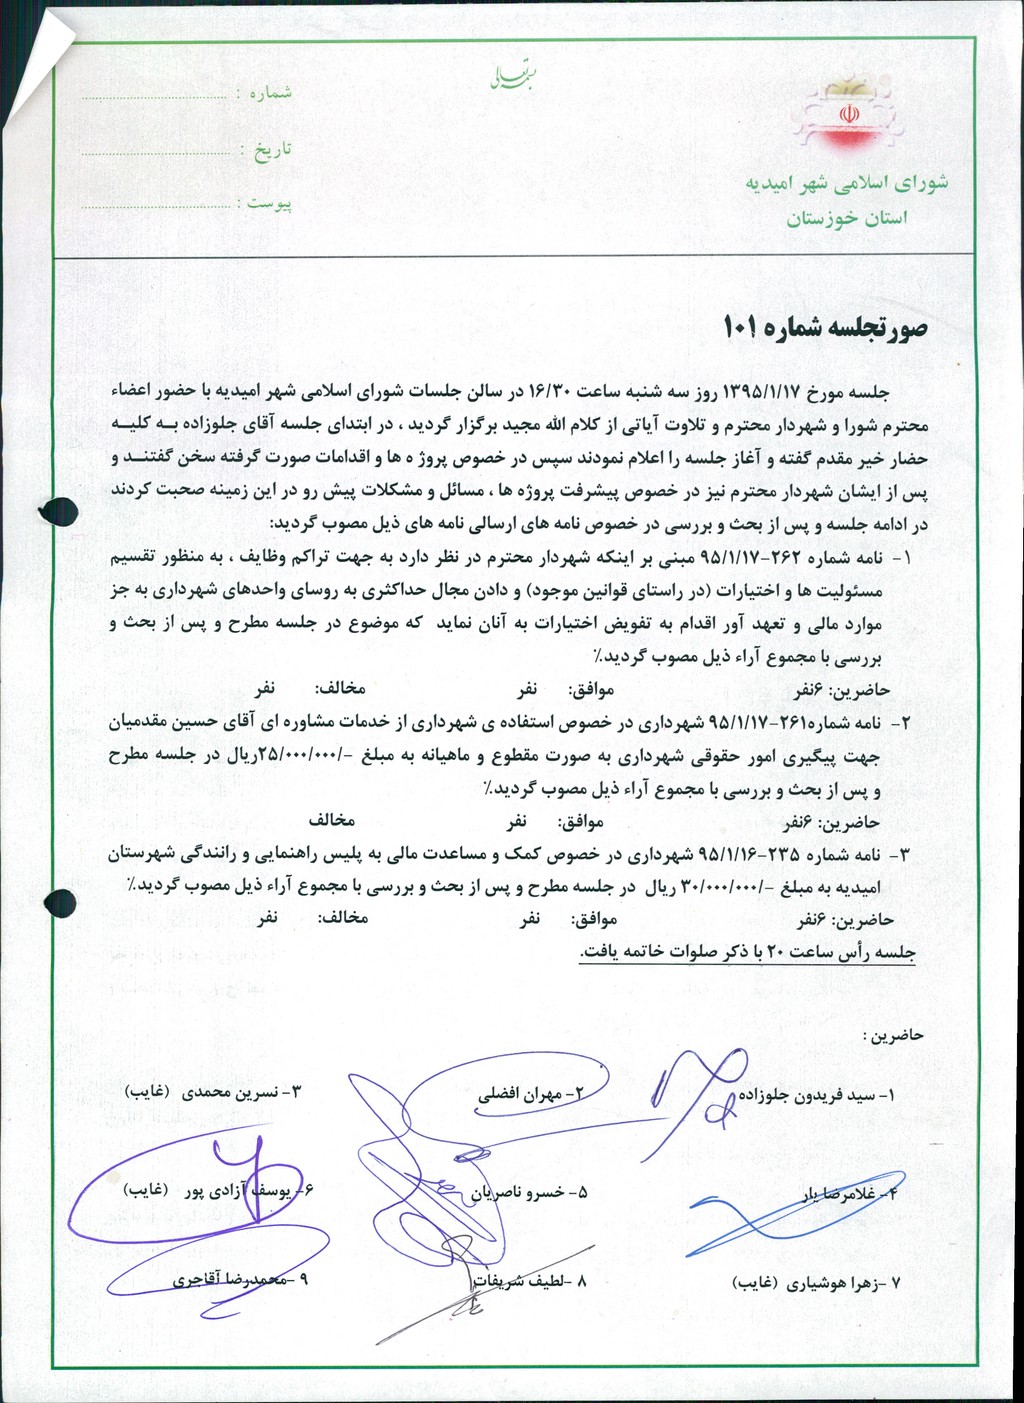 بسمه تعالی
شورای اسلامی شهر امیدیه
استان خوزستان
شماره :
تاریخ :
پیوست :
صورتجلسه شماره ۱۰۱
جلسه مورخ ۱۳۹۵/۱/۱۷ روز سه شنبه ساعت ۱۶/۳۰ در سالن جلسات شورای اسلامی شهر امیدیه با حضور اعضاء
محترم شورا و شهردار محترم و تلاوت آیاتی از کلام الله مجید برگزار گردید ، در ابتدای جلسه آقای جلوزاده به کلیه
حضار خیر مقدم گفته و آغاز جلسه را اعلام نمودند سپس در خصوص پروژه ها و اقدامات صورت گرفته سخن گفتند و
پس از ایشان شهردار محترم نیز در خصوص پیشرفت پروژه ها ، مسائل و مشکلات پیش رو در این زمینه صحبت کردند
در ادامه جلسه و پس از بحث و بررسی در خصوص نامه های ارسالی نامه های ذیل مصوب گردید:
۱- نامه شماره ۲۶۲-۹۵/۱/۱۷ مبنی بر اینکه شهردار محترم در نظر دارد به جهت تراکم وظایف ، به منظور تقسیم
مسئولیت ها و اختیارات (در راستای قوانین موجود) و دادن مجال حداکثری به روسای واحدهای شهرداری به جز
موارد مالی و تعهد آور اقدام به تفویض اختیارات به آنان نماید که موضوع در جلسه مطرح و پس از بحث و
بررسی با مجموع آراء ذیل مصوب گردید.٪
حاضرین: ۶نفر موافق: نفر مخالف: نفر
۲- نامه شماره۲۶۱-۹۵/۱/۱۷ شهرداری در خصوص استفاده ی شهرداری از خدمات مشاوره ای آقای حسین مقدمیان
جهت پیگیری امور حقوقی شهرداری به صورت مقطوع و ماهیانه به مبلغ -/۲۵/۰۰۰/۰۰۰ریال در جلسه مطرح
و پس از بحث و بررسی با مجموع آراء ذیل مصوب گردید.٪
حاضرین: ۶نفر موافق: نفر مخالف
۳- نامه شماره ۲۳۵-۹۵/۱/۱۶ شهرداری در خصوص کمک و مساعدت مالی به پلیس راهنمایی و رانندگی شهرستان
امیدیه به مبلغ -/۳۰/۰۰۰/۰۰۰ ریال در جلسه مطرح و پس از بحث و بررسی با مجموع آراء ذیل مصوب گردید.٪
حاضرین: ۶نفر موافق: نفر مخالف: نفر
جلسه رأس ساعت ۲۰ با ذکر صلوات خاتمه یافت.
حاضرین :
۱- سید فریدون جلوزاده ۲- مهران افضلی ۳- نسرین محمدی (غایب)
۴- غلامرضا یار ۵- خسرو ناصریان ۶- یوسف آزادی پور (غایب)
۷ -زهرا هوشیاری (غایب) ۸ -لطیف شریفات ۹ -محمدرضا آقاجری